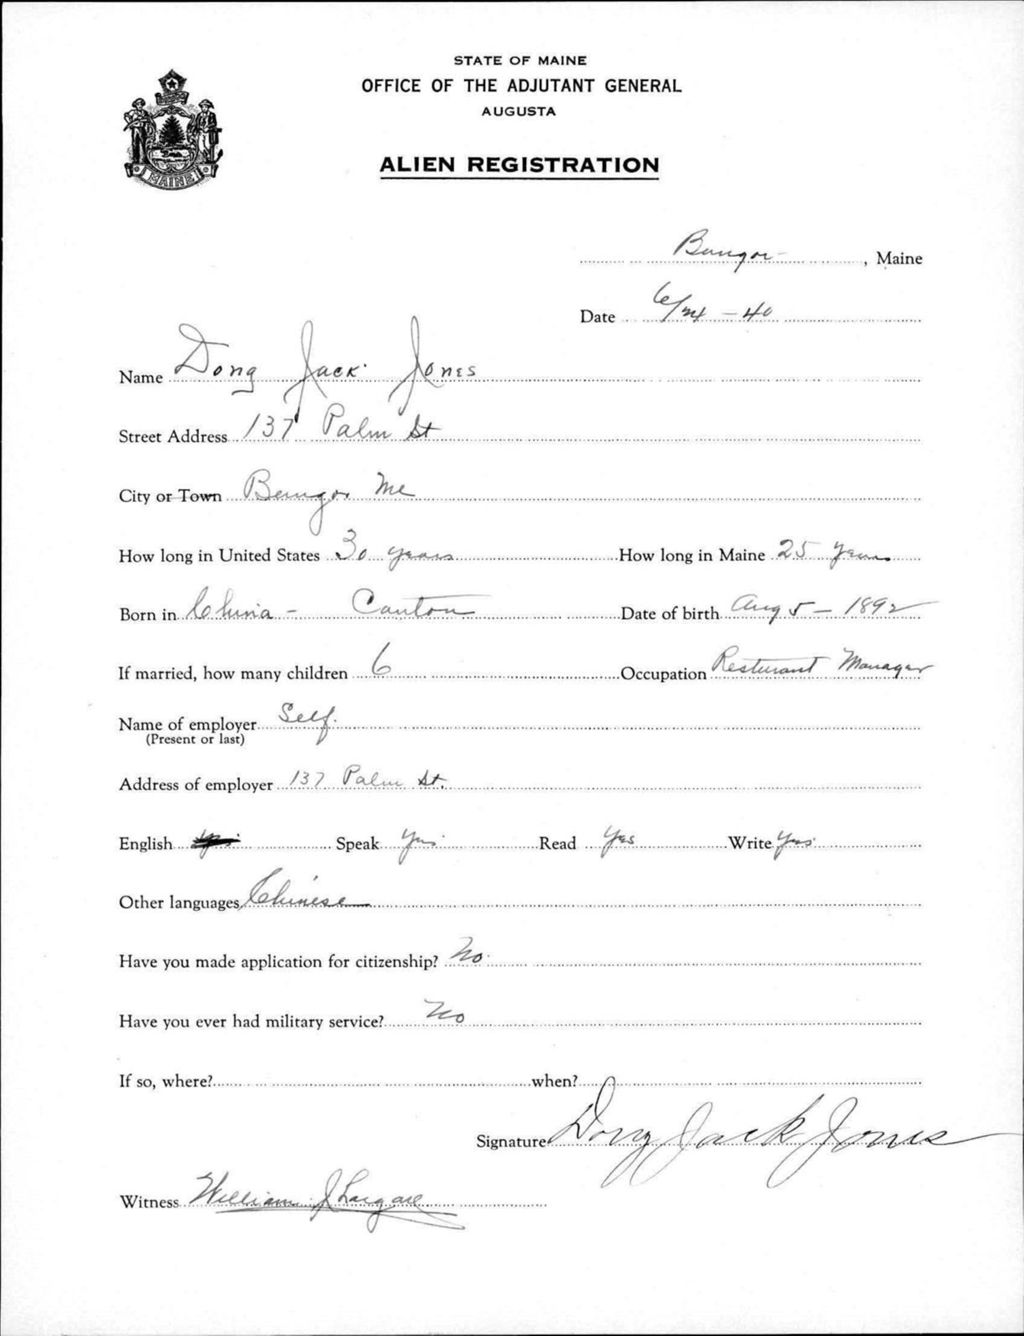 STATE OF MAINE
OFFICE OF THE ADJUTANT GENERAL
AUGUSTA
ALIEN REGISTRATION
MAINE
Bangor, Maine
Date 6/24-40
Name Dong Jack Jones
Street Address 137 Palm St
City or Town Bangor Me
How long in United States 30 years How long in Maine 25 Years
Born in China - Canton Date of birth Aug 5 - 1892
If married, how many children 6 Occupation Resturant Manager
Name of employer Self.
(Present or last)
Address of employer 137 Palm St.
English Speak Yes Read Yes Write Yes
Other languages Chinese
Have you made application for citizenship? No
Have you ever had military service? No
If so, where? when?
Signature Dong Jack Jones
Witness William J